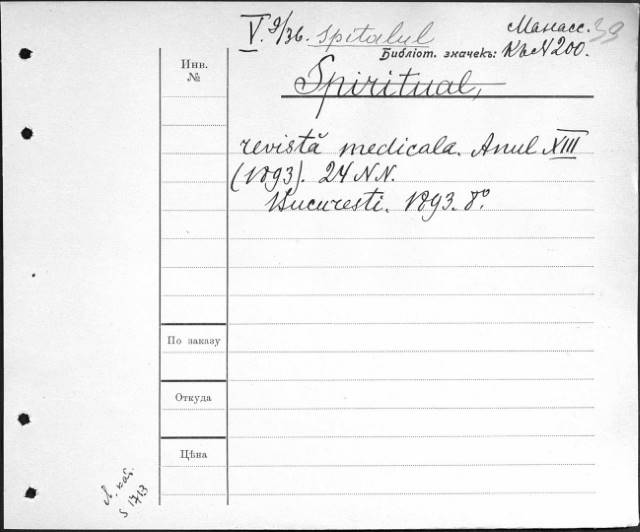 V. 9/36. Spitalul
Манасс. 39
Библіот. значекъ: Къ N 200.
Инв.
№
Spiritual,
revistă medicala. Anul XIII
(1893). 24 N.N.
Bucuresti. 1893. 8º.
По заказу
Откуда
Цѣна
S 1713